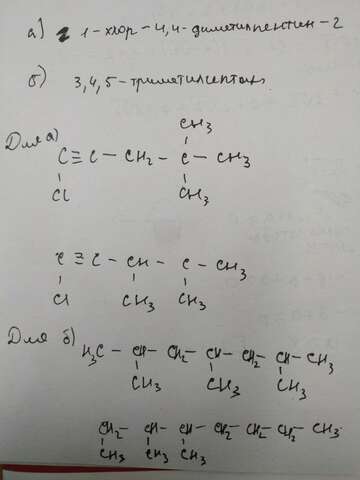 а) 1-хлор-4,4-диметилпентин-2
б) 3,4,5-триметилгептан
Для а)
CH₃
C≡C-CH₂-C-CH₃
Cl CH₃
C≡C-CH-C-CH₃
Cl CH₃ CH₃
Для б)
H₃C-CH-CH₂-CH-CH₂-CH-CH₃
CH₃ CH₃ CH₃
CH₂-CH-CH-CH₂-CH₂-CH₂-CH₃
CH₃ CH₃ CH₃